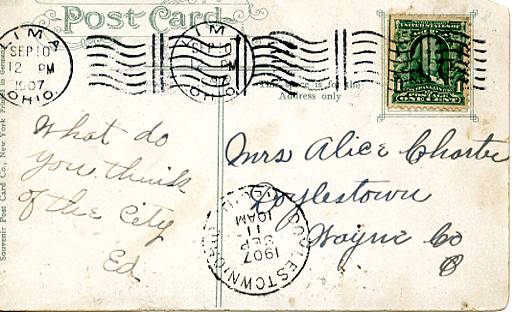 Post Card
LIMA
SEP 10
12 PM
1907
OHIO.
LIMA
PM
OHIO
This space is for the
Address only
1
ONE CENT
What do
you think
of the City
Ed
Mrs Alice Charter
Doylestown
Wayne Co
O
DOYLESTOWN, OHIO
10AM
11
SEP
1907
Souvenir Post Card Co., New York Printed in Germany